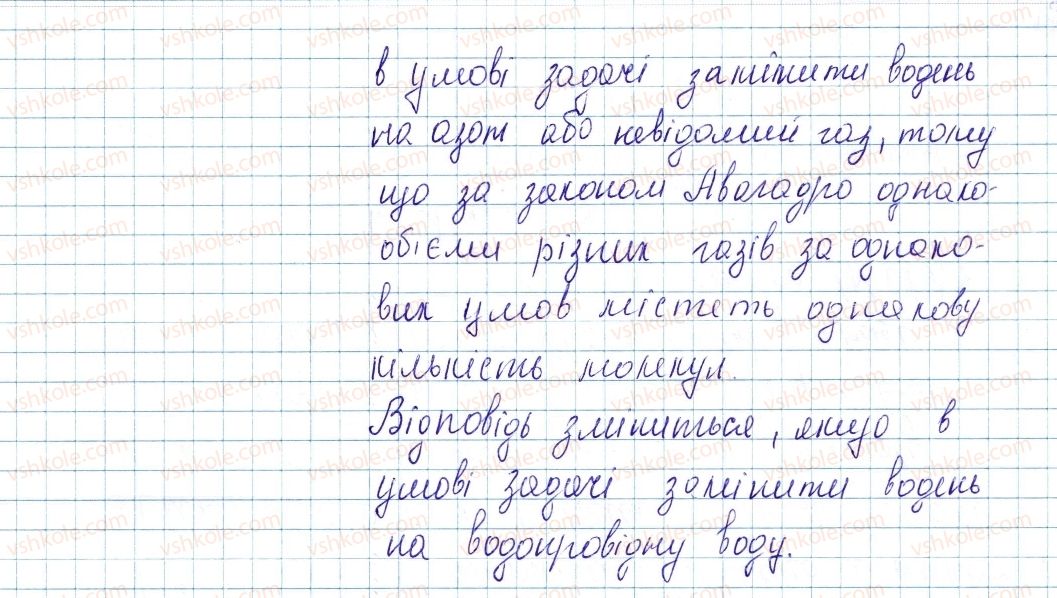 в умові задачі замінити водень
на азот або невідомий газ, тому
що за законом Авогадро однако-
обієми різних газів за однако-
вих умов містеть однакову
кількість молекул.
Відповідь зміниться, якщо в
умові задачі замінити водень
на водопровідну воду.